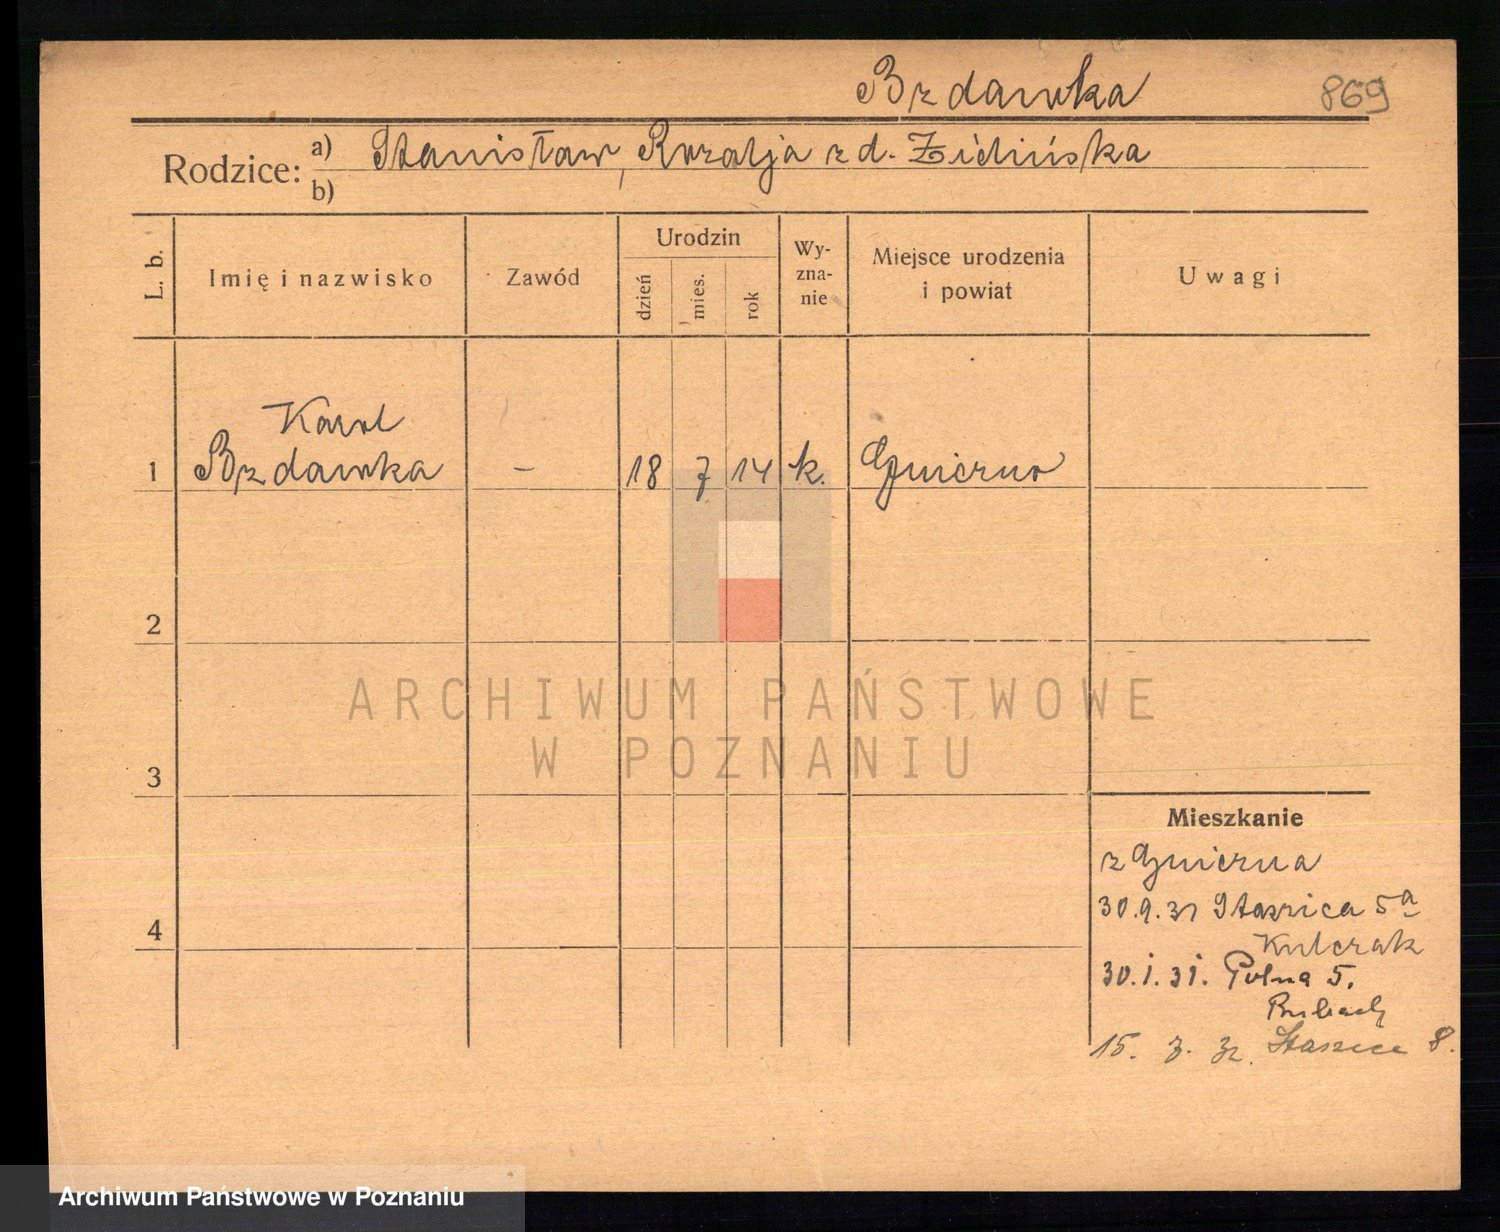 Brdawka 869
Rodzice: a) Stanisław, Rozalja z d. Zielińska
b)
L. b. Imię i nazwisko Zawód Urodzin dzień mies. rok Wy-zna-nie Miejsce urodzenia i powiat Uwagi
Karol
1 Brdawka – 18 7 14 k. Gniezno
2
ARCHIWUM PAŃSTWOWE
W POZNANIU
3
Mieszkanie
z Gniezna
30.9.31 Staszica 5a
4
Kulczak
30.1.31. Polna 5.
15. 7. 32. Staszica 8.
Archiwum Państwowe w Poznaniu